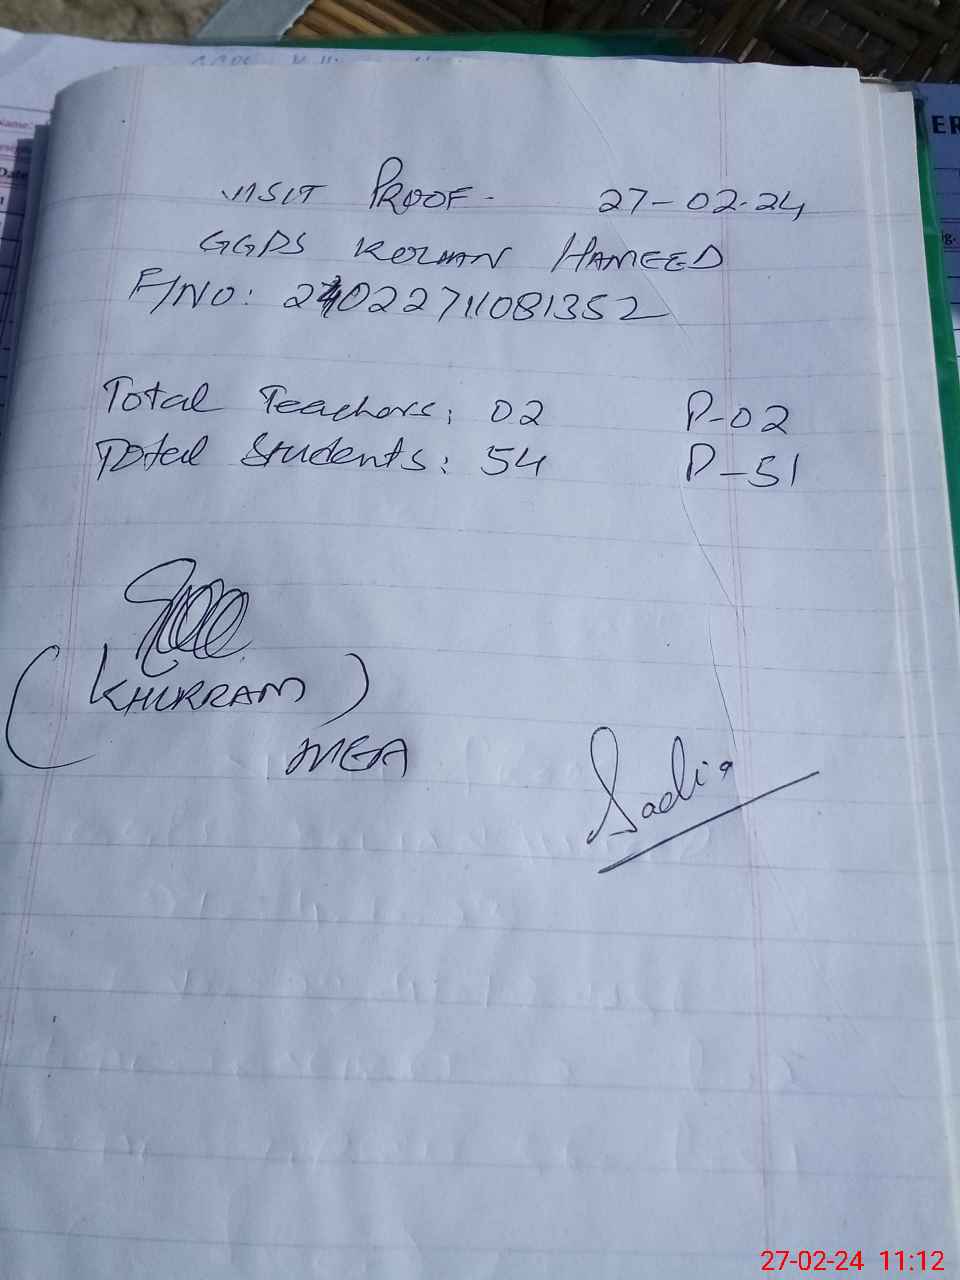 VISIT PROOF - 27-02-24
GGPS KOLIAN HAMEED
F/NO: 24022711081352
Total Teachers: 02 P-02
Total Students: 54 P-51
(KHURRAM)
MEA
Sadia
ER
Name:
Date
27-02-24 11:12